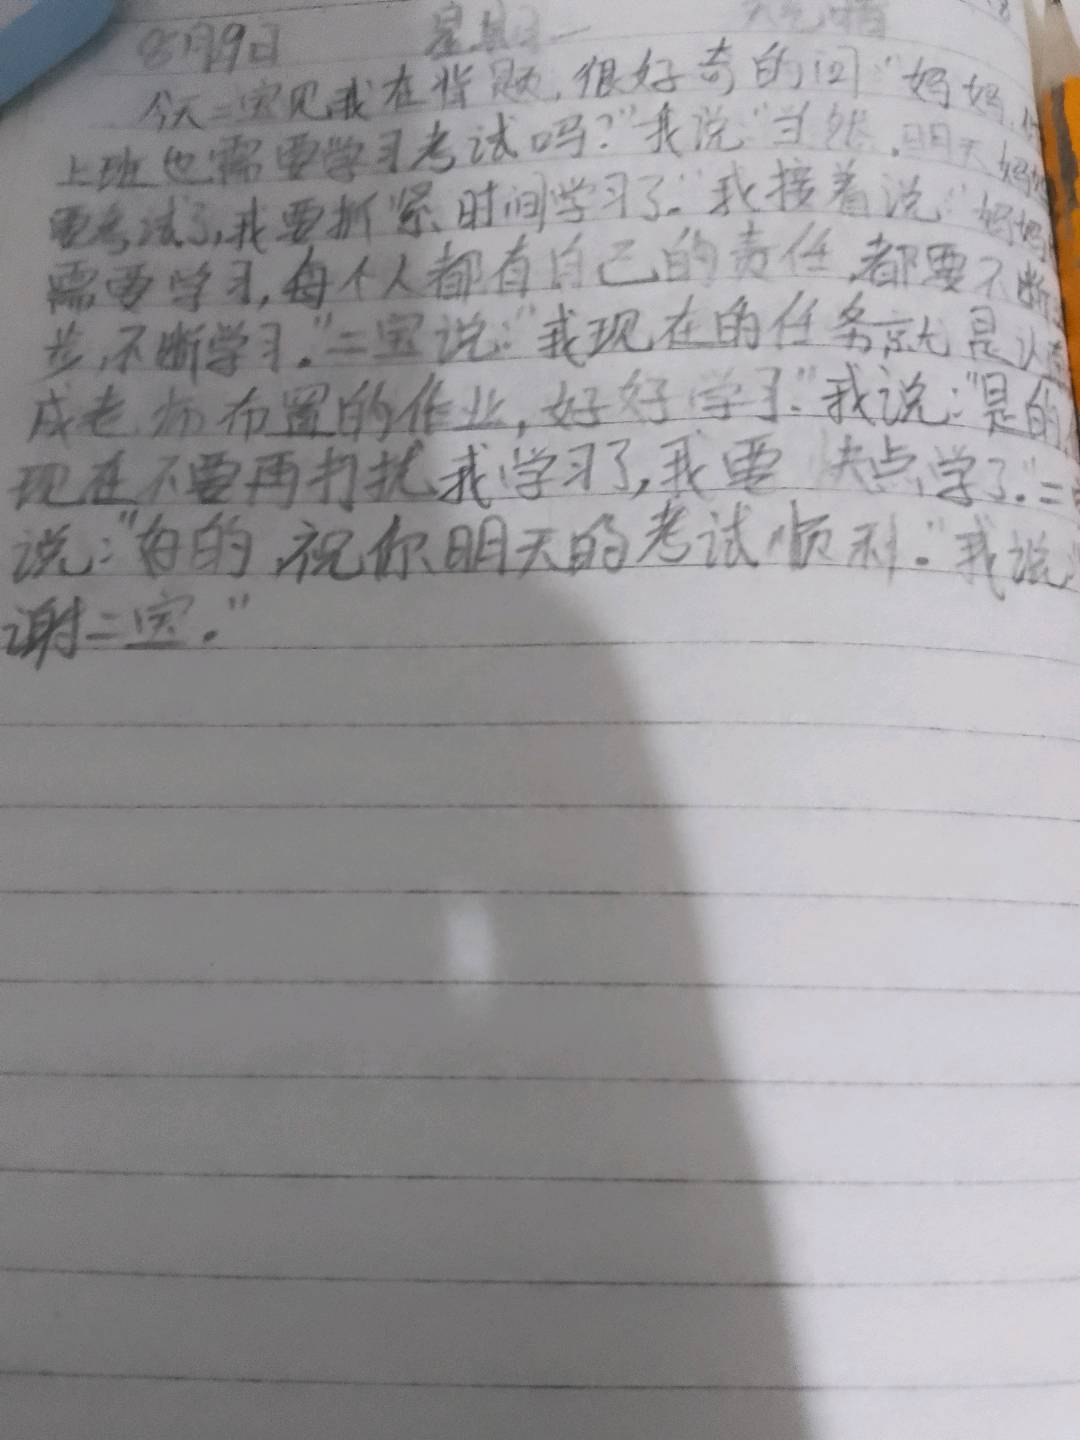 8月9日 星期一 天气晴
今天二宝见我在背题,很好奇的问:"妈妈,
上班也需要学习考试吗?"我说:"当然,明天妈妈
要考试了,我要抓紧时间学习了。"我接着说:"妈妈
需要学习,每个人都有自己的责任,都要不断
步,不断学习。"二宝说:"我现在的任务就是认
成老师布置的作业,好好学习"我说:"是的,
现在不要再打扰我学习了,我要快点学了."二
说:"好的,祝你明天的考试顺利。"我说
谢二宝。"